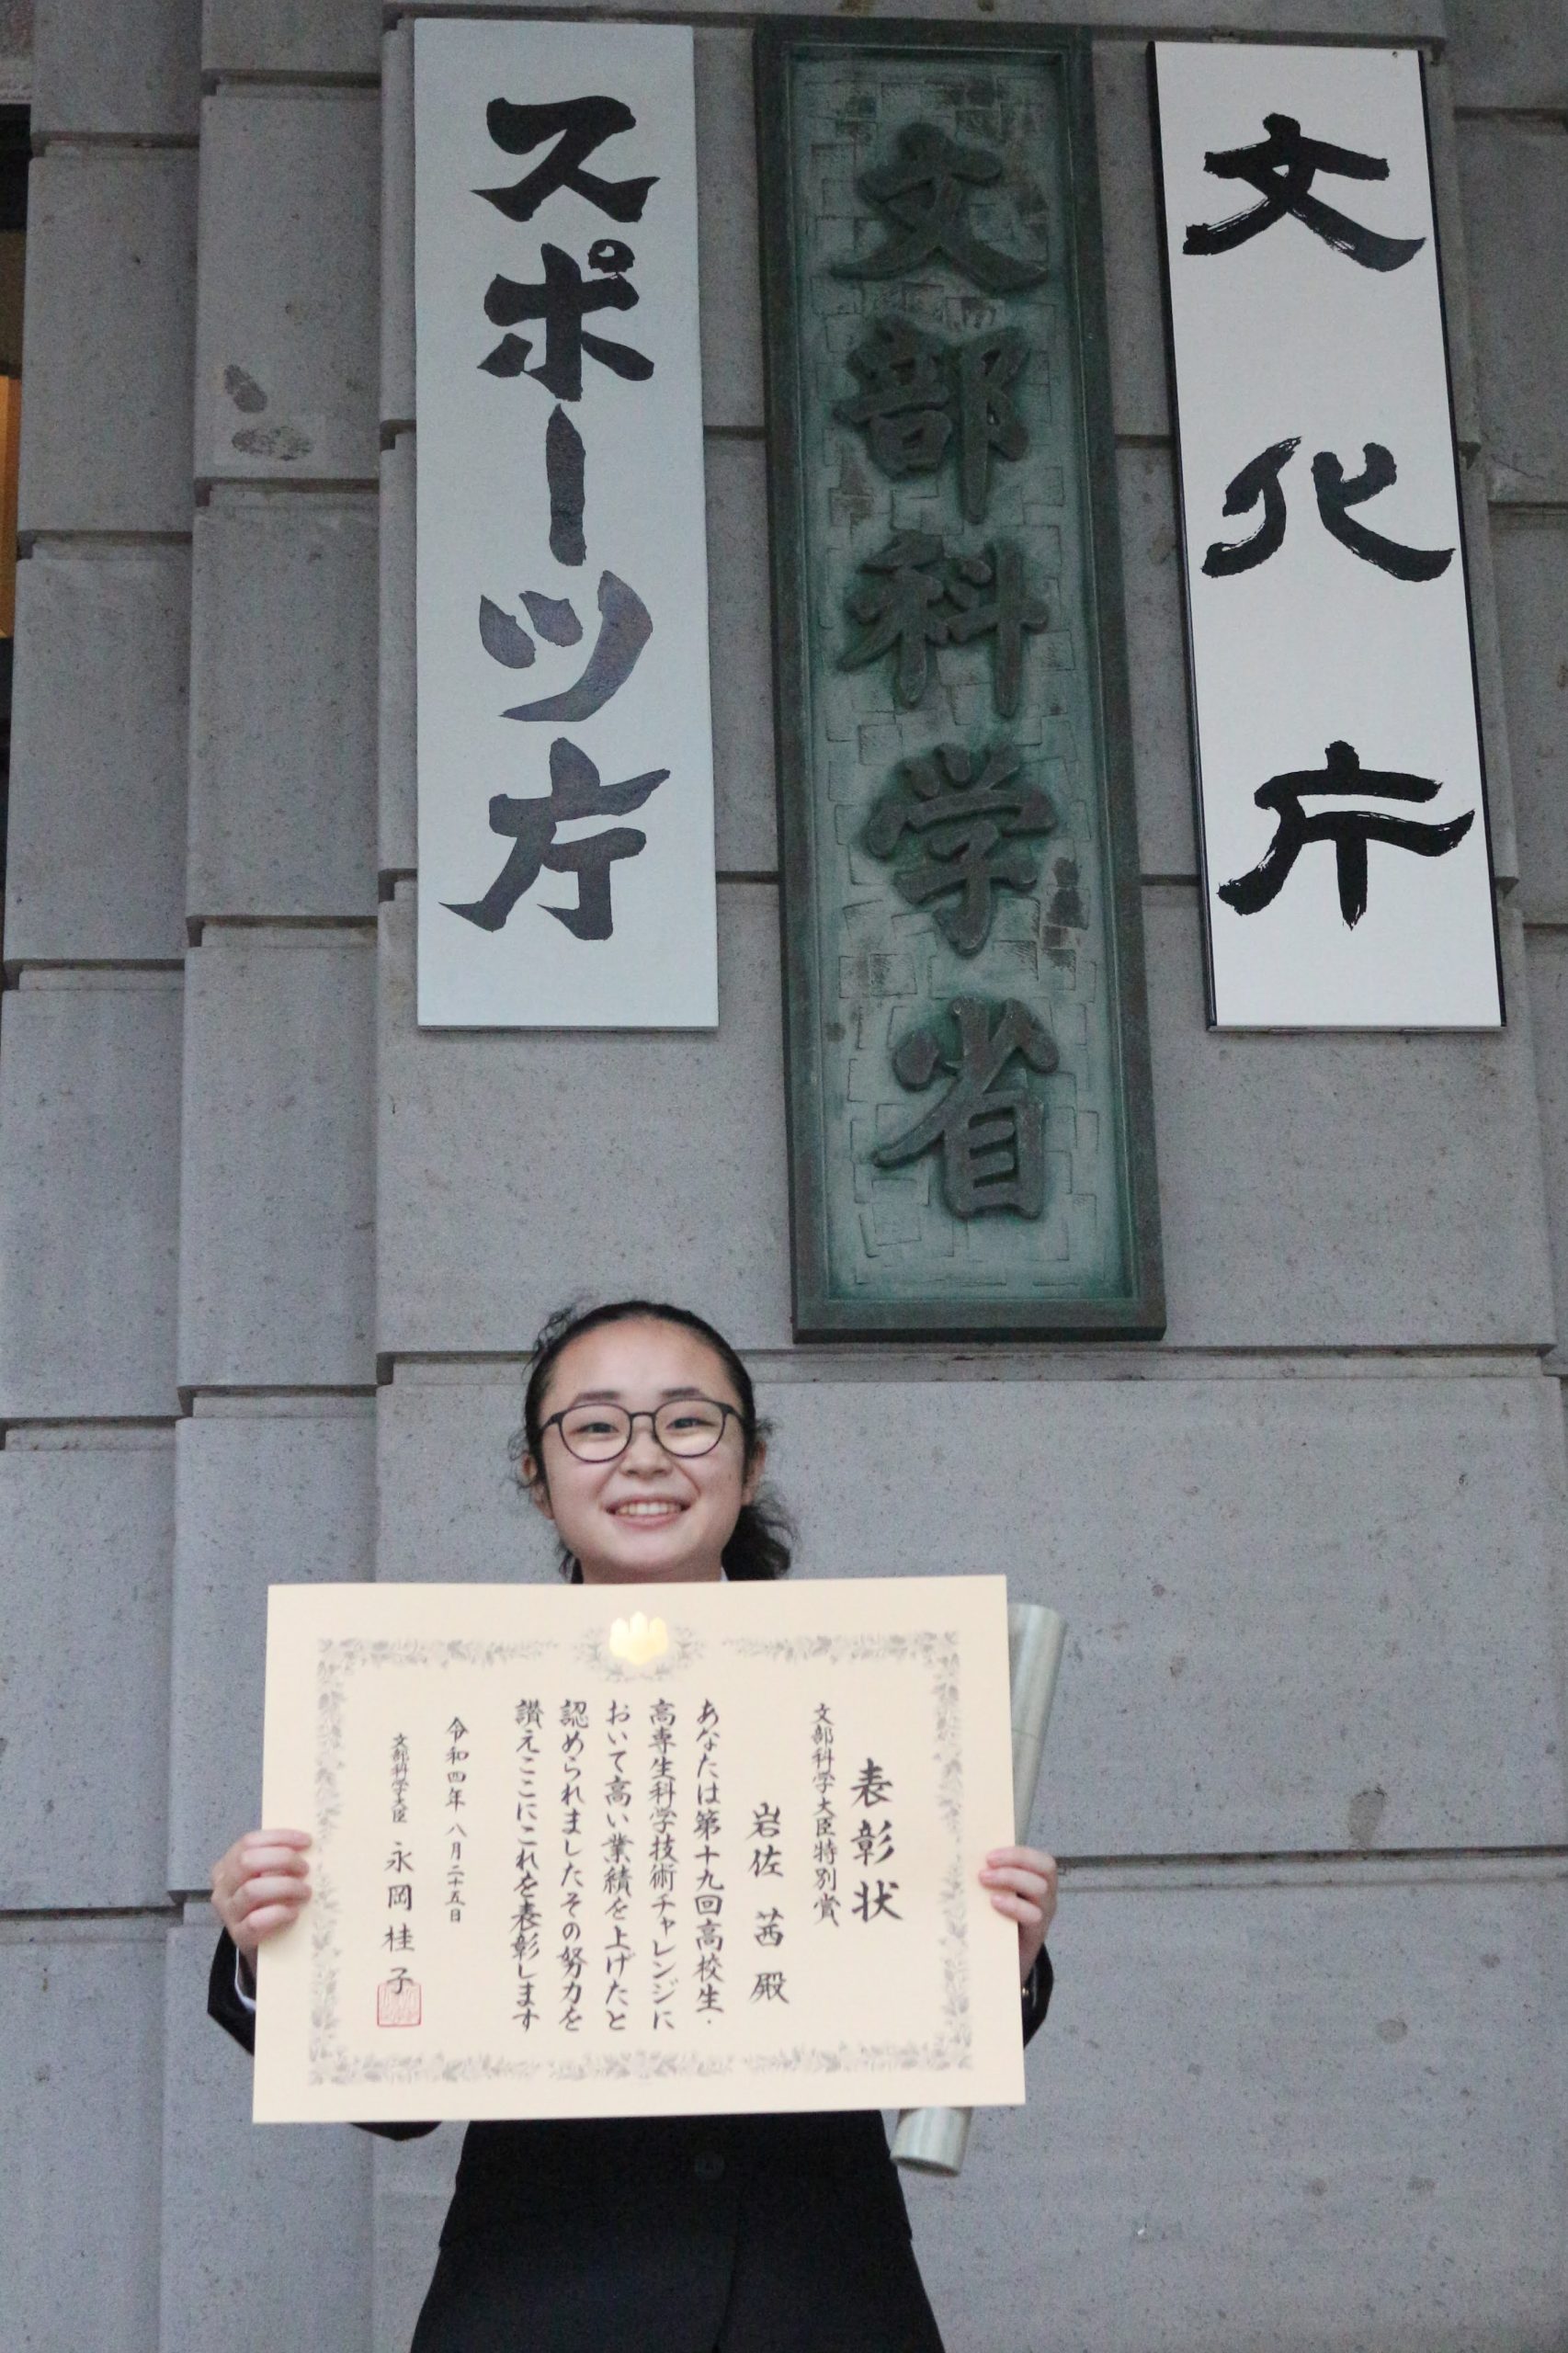 文化庁
文部科学省
スポーツ庁
表彰状
文部科学大臣特別賞
岩佐 茜 殿
あなたは第十九回高校生・
高専生科学技術チャレンジに
おいて高い業績を上げたと
認められましたその努力を
讃えここにこれを表彰します
令和四年八月二十五日
文部科学大臣 永岡桂子